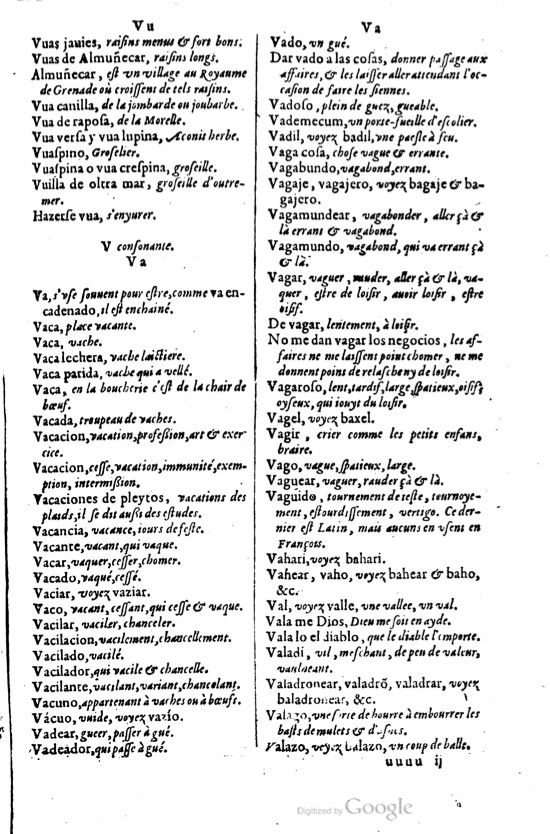 Vu
Vuas jauies, raisins menus & fort bons.
Vuas de Almuñecar, raisins longs.
Almuñecar, est vn village au Royaume
de Grenade où croissent de tels raisins.
Vua canilla, de la jombarde ou joubarbe.
Vua de raposa, de la Morelle.
Vua versa y vua lupina, Aconit herbe.
Vuaspino, Groselier.
Vuaspina o vua crespina, groseille.
Vuilla de oltra mar, groseille d'outre-
mer.
Hazerse vua, s'enyurer.
V consonante.
Va
Va, s'vse souuent pour estre, comme va en-
cadenado, il est enchainé.
Vaca, place vacante.
Vaca, vache.
Vaca lechera, vache laictiere.
Vaca parida, vache qui a vellé.
Vaca, en la boucherie c'est de la chair de
bœuf.
Vacada, troupeau de vaches.
Vacacion, vacation, profession, art & exer
cice.
Vacacion, cesse, vacation, immunité, exem-
ption, intermission.
Vacaciones de pleytos, vacations des
plaids, il se dit aussi des estudes.
Vacancia, vacance, iours de feste.
Vacante, vacant, qui vaque.
Vacar, vaquer, cesser, chomer.
Vacado, vaqué, cessé.
Vaciar, voyez vaziar.
Vaco, vacant, cessant, qui cesse & vaque.
Vacilar, vaciler, chanceler.
Vacilacion, vacilement, chancellement.
Vacilado, vacilé.
Vacilador, qui vacile & chancelle.
Vacilante, vacilant, variant, chancelant.
Vacuno, appartenant à vaches ou à bœufs.
Vácuo, vuide, voyez vazio.
Vadear, gueer, passer à gué.
Vadeador, qui passe à gué.
Va
Vado, vn gué.
Dar vado a las cosas, donner passage aux
affaires, & les laisser aller attendant l'oc-
casion de faire les siennes.
Vadoso, plein de guez, gueable.
Vademecum, vn porte-fueille d'escolier.
Vadil, voyez badil, vne paesle à feu.
Vaga cosa, chose vague & errante.
Vagabundo, vagabond, errant.
Vagaje, vagajero, voyez bagaje & ba-
gajero.
Vagamundear, vagabonder, aller çà &
là errant & vagabond.
Vagamundo, vagabond, qui va errant çà
& là.
Vagar, vaguer, rauder, aller çà & là, va-
quer, estre de loisir, auoir loisir, estre
oisif.
De vagar, lentement, à loisir.
No me dan vagar los negocios, les af-
faires ne me laissent point chomer, ne me
donnent point de relasche ny de loisir.
Vagaroso, lent, tardif, large, spatieux, oisif,
oyseux, qui iouyt du loisir.
Vagel, voyez baxel.
Vagir, crier comme les petits enfans,
braire.
Vago, vague, spatieux, large.
Vaguear, vaguer, rauder çà & là.
Vaguido, tournement de teste, tournoye-
ment, estourdissement, vertigo. Ce der-
nier est Latin, mais aucuns en vsent en
François.
Vahari, voyez bahari.
Vahear, vaho, voyez bahear & baho,
&c.
Val, voyez valle, vne vallee, vn val.
Vala me Dios, Dieu me soit en ayde.
Vala lo el diablo, que le diable l'emporte.
Valadi, vil, meschant, de peu de valeur,
vauneant.
Valadronear, valadrō, valadrar, voyez
baladronear, &c.
Valazo, vne sorte de bourre à embourrer les
basts de mulets & d'asnes.
Valazo, voyez balazo, un coup de balle.
uuuu ij
Digitized by Google